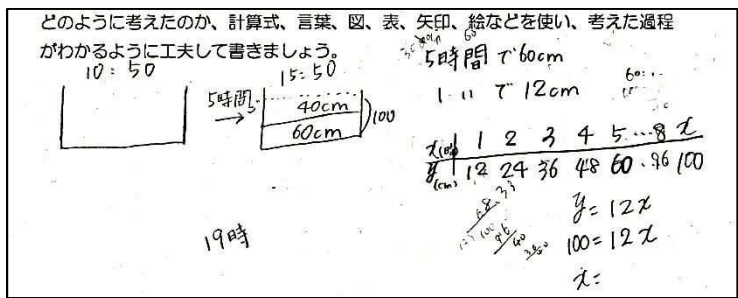 どのように考えたのか、計算式、言葉、図、表、矢印、絵などを使い、考えた過程
がわかるように工夫して書きましょう。
10:50
15:50
5時間
→
40cm
60cm
100
19時
5時間で60cm
1 〃 で12cm
x(時) 1 2 3 4 5…8 x
y(cm) 12 24 36 48 60 . 96 100
y=12x
100=12x
x=